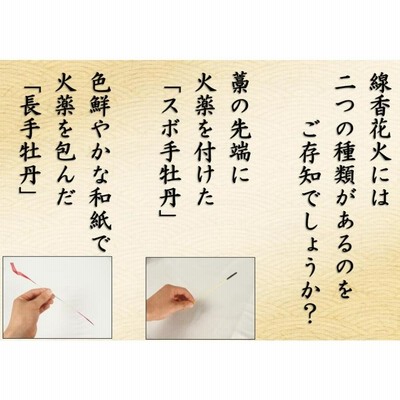 線香花火には
二つの種類があるのを
ご存知でしょうか?
藁の先端に
火薬を付けた
「スボ手牡丹」
色鮮やかな和紙で
火薬を包んだ
「長手牡丹」